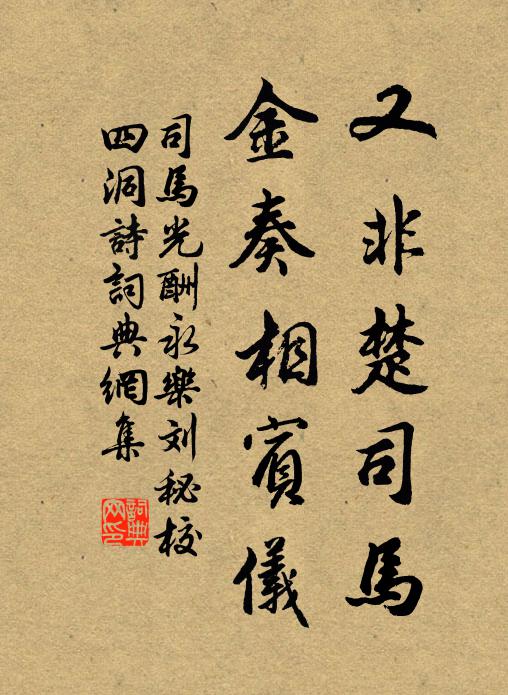 又非楚司馬
金奏相賓儀
司馬光酬永樂刘秘校
四洞詩詞典網集
詞典
网印